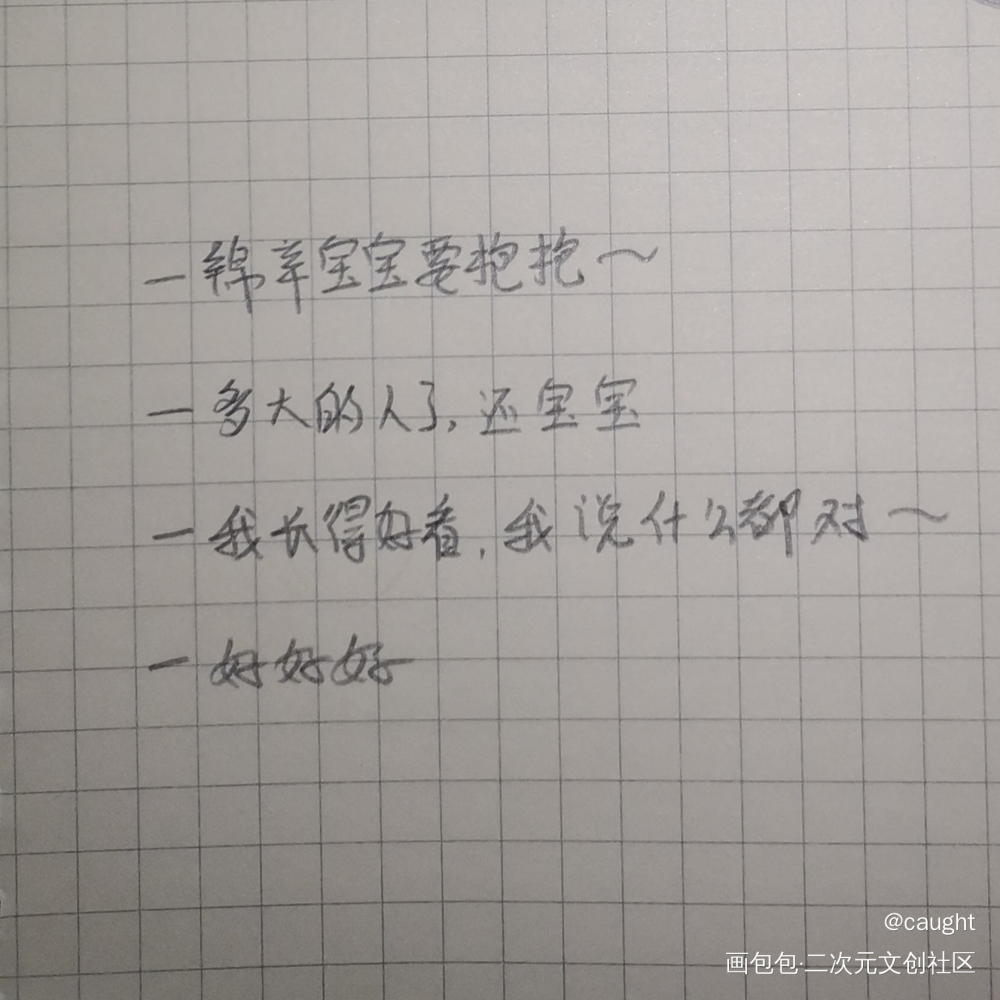 —绵羊宝宝要抱抱～
—多大的人了,还宝宝
—我长得好看,我说什么都对～
—好好好
@caught
画包包·二次元文创社区